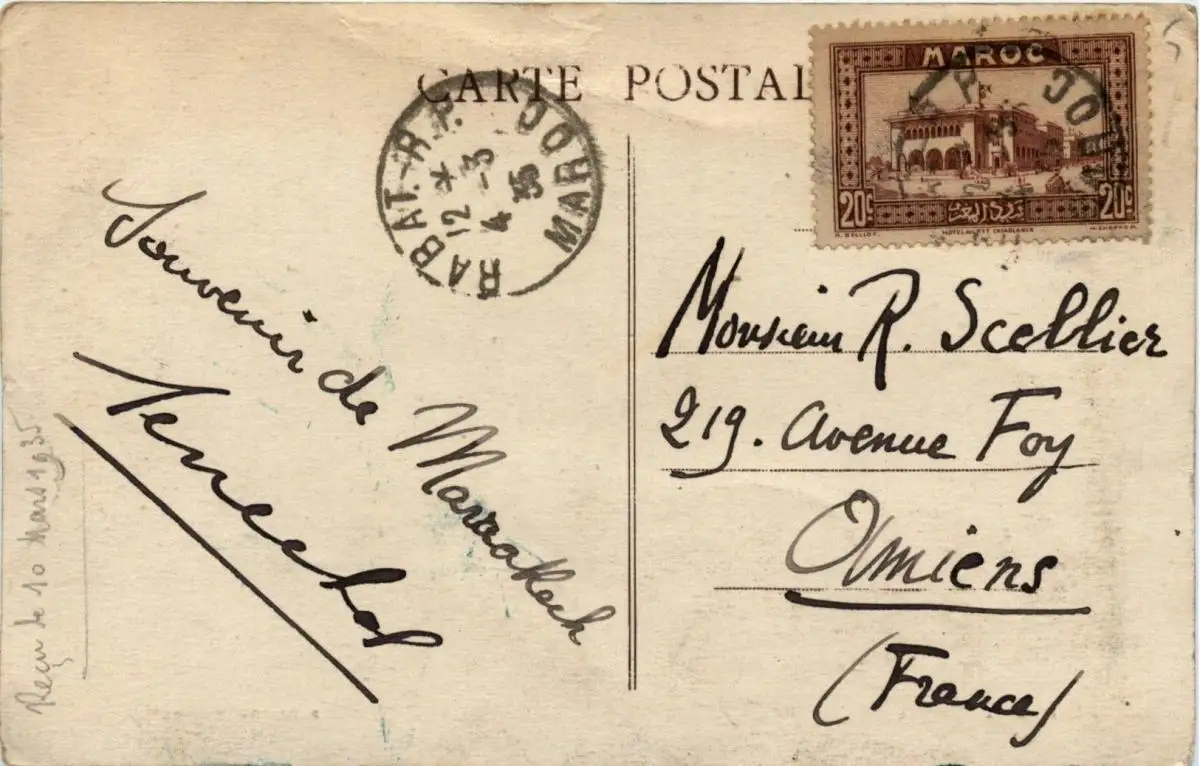 CARTE POSTAL
MAROC
20c 20c
RABAT. R.P.
12 *
4 -3
35
MAROC
Souvenir de Marrakech
Monsieur R. Scellier
219. Avenue Foy
Amiens
(France)
Reçu le 10 Mars 1935